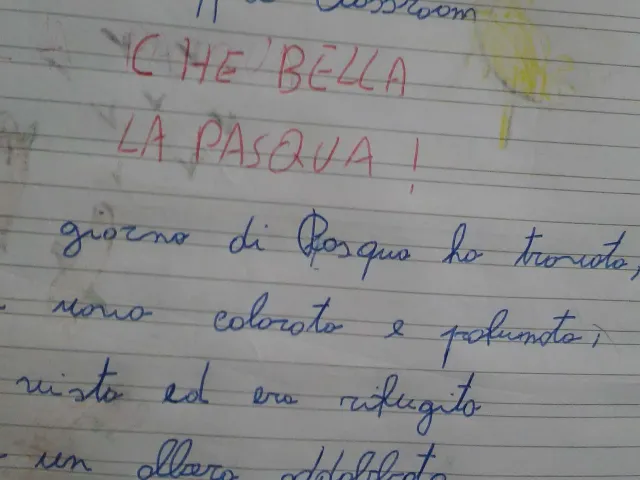 Classroom
CHE BELLA
LA PASQUA!
giorno di Pasqua ho trovato,
uovo colorato e profumato,
visto ed era rifugito
un albero addobbato